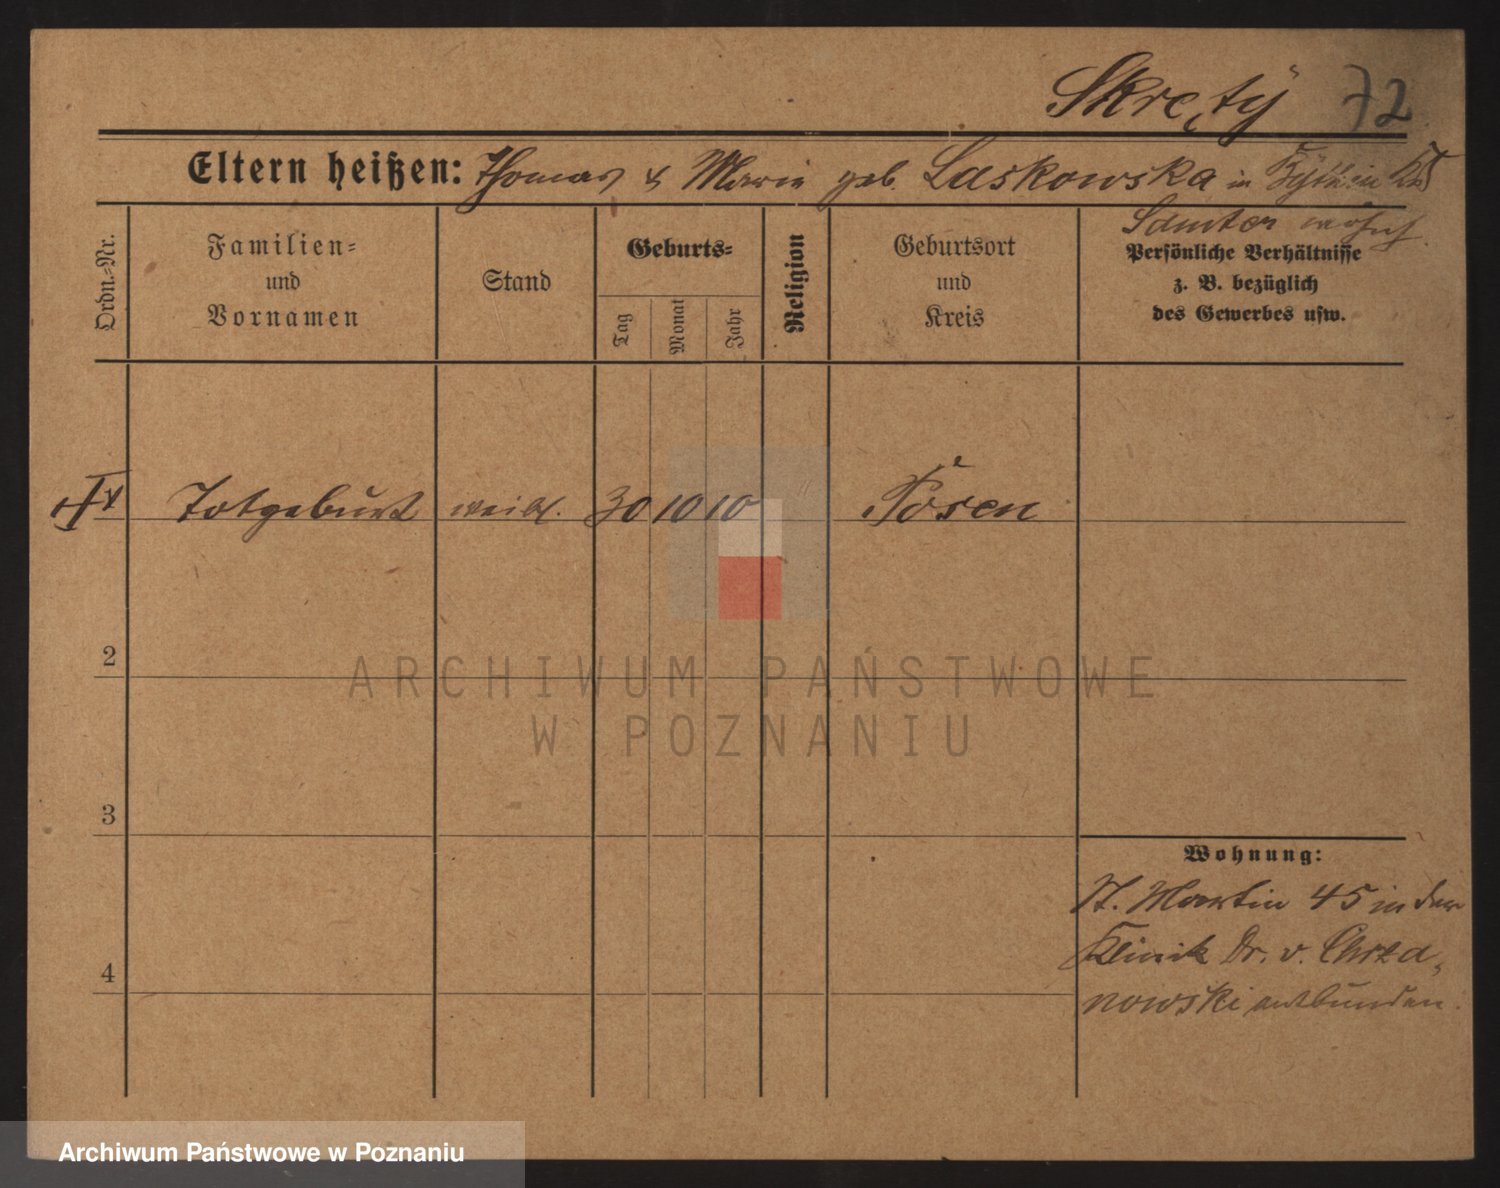 Skręty 72
Eltern heißen: Thomas & Marie geb. Laskowska in Kr.
Samter wohnh.
Ordn.-Nr.
Familien-
und
Vornamen
Stand
Geburts-
Tag
Monat
Jahr
Religion
Geburtsort
und
Kreis
Persönliche Verhältnisse
z. B. bezüglich
des Gewerbes usw.
Totgeburt weibl. 30 10 10 Posen
2
3
4
Wohnung:
St. Martin 45 in der
Klinik Dr. v. Chrza-
nowski entbunden.
ARCHIWUM PAŃSTWOWE
W POZNANIU
Archiwum Państwowe w Poznaniu